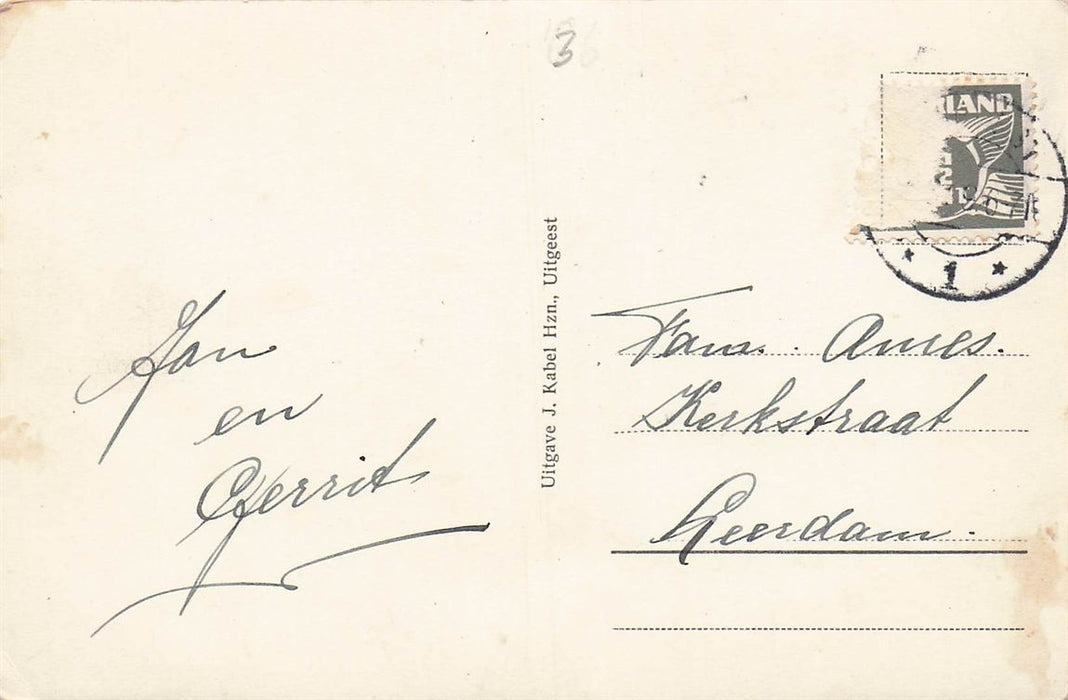 3
Jan
en
Gerrit
Uitgave J. Kabel Hzn., Uitgeest
LAND
1
Fam. Ames.
Kerkstraat
Leerdam.